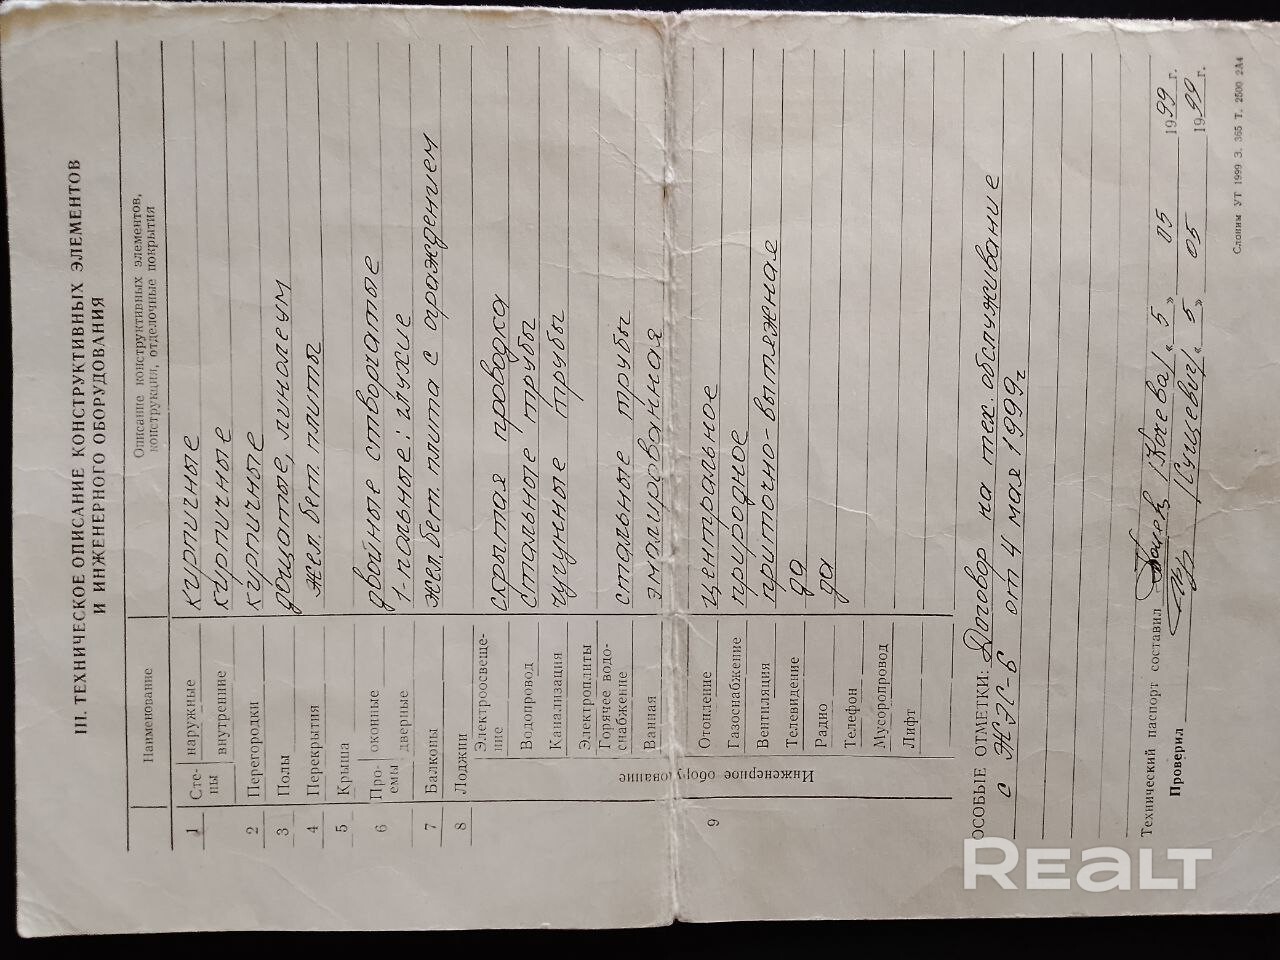 III. ТЕХНИЧЕСКОЕ ОПИСАНИЕ КОНСТРУКТИВНЫХ ЭЛЕМЕНТОВ
И ИНЖЕНЕРНОГО ОБОРУДОВАНИЯ
Наименование
Описание конструктивных элементов,
конструкция, отделочные покрытия
1 Сте-ны наружные кирпичные
внутренние кирпичные
2 Перегородки кирпичные
3 Полы дощатые, линолеум
4 Перекрытия жел. бет. плиты
5 Крыша
6 Про-емы оконные двойные створчатые
дверные 1-польные: глухие
7 Балконы жел. бет. плита с ограждением
8 Лоджии
9 Инженерное оборудование
Электроосвеще-
ние скрытая проводка
Водопровод стальные трубы
Канализация чугунные трубы
Электроплиты
Горячее водо-
снабжение стальные трубы
Ванная эмалированная
Отопление центральное
Газоснабжение природное
Вентиляция приточно-вытяжная
Телевидение да
Радио да
Телефон
Мусоропровод
Лифт
ОСОБЫЕ ОТМЕТКИ: Договор на тех. обслуживание
с ЖЭС-6 от 4 мая 1999г
Технический паспорт составил /Кочева/ « 5 » 05 1999 г.
Проверил « 5 » 05 1999 г.
Слоним УТ 1999 З. 365 Т. 2500 2А4
REALT